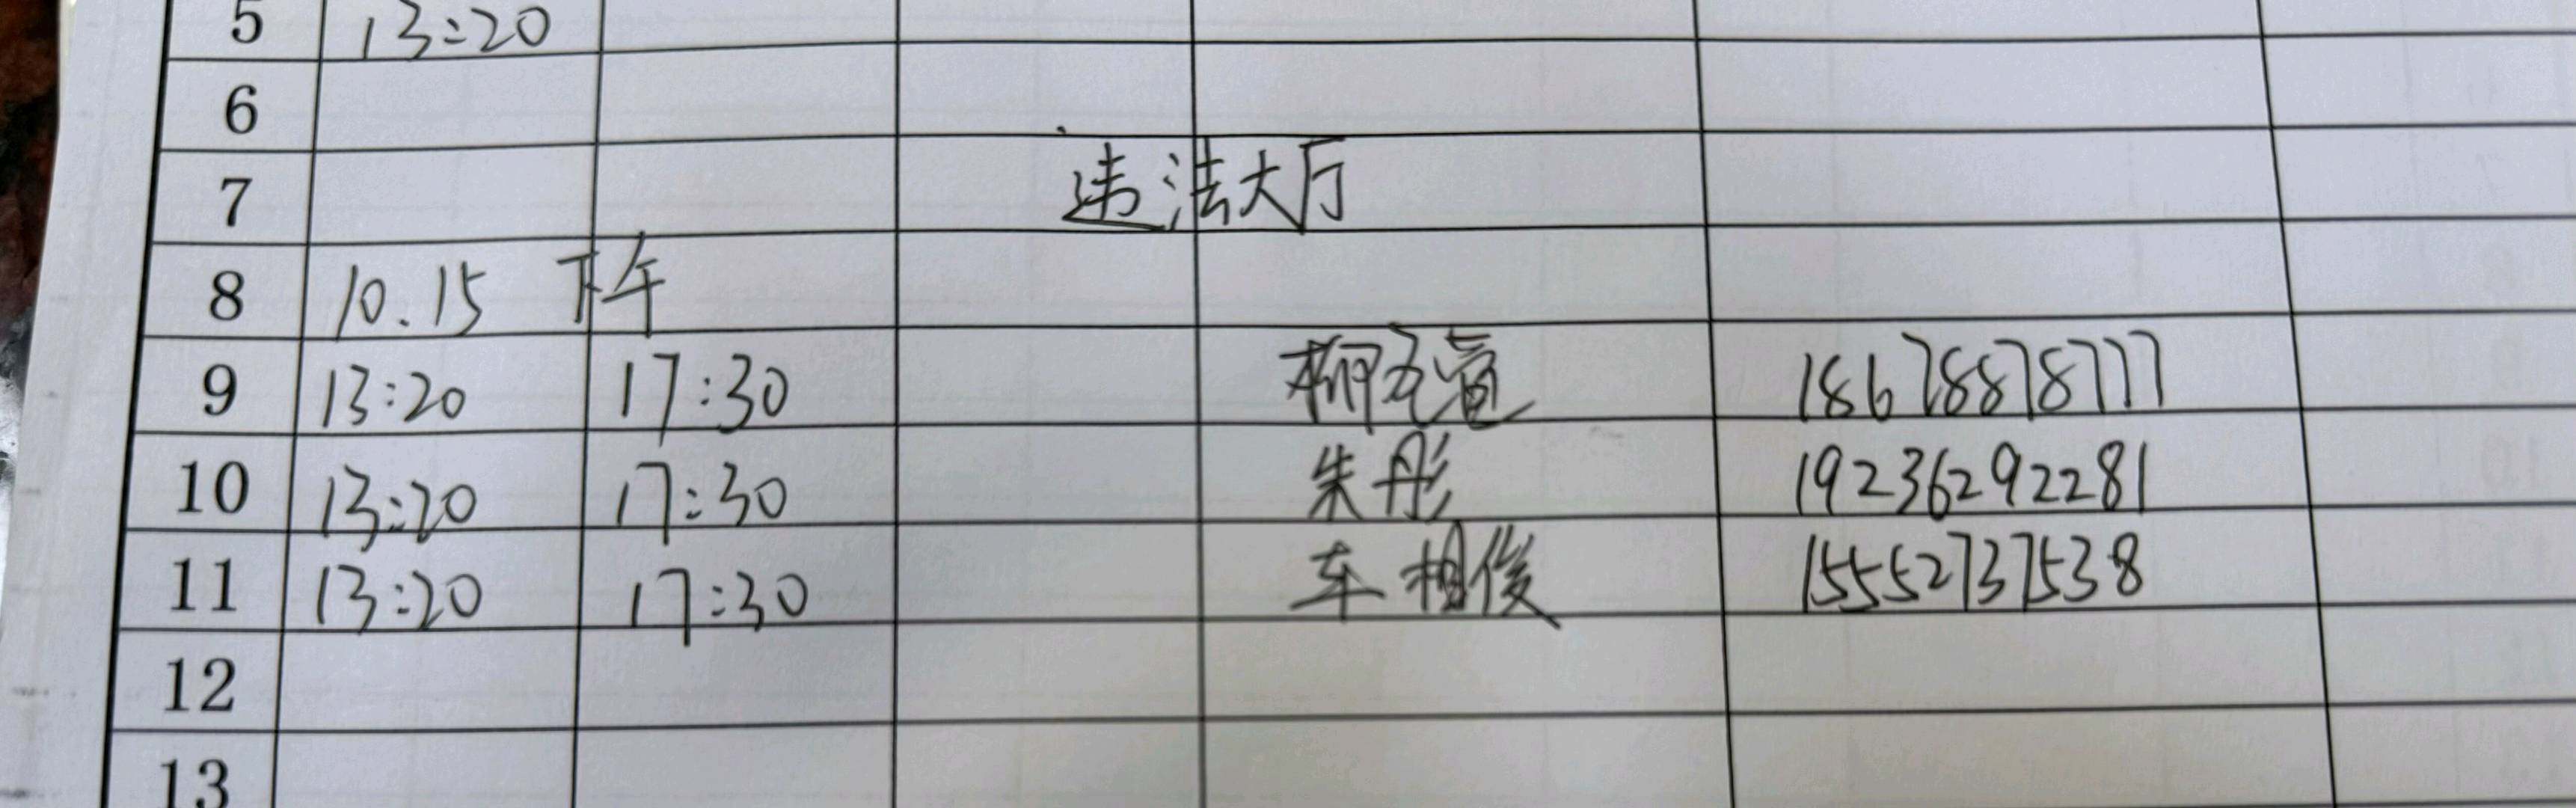 5 13:20
6
7 违法大厅
8 10.15 下午
9 13:20 17:30 柳 18678878777
10 13:20 17:30 朱彤 19236292281
11 13:20 17:30 车相俊 15552737538
12
13